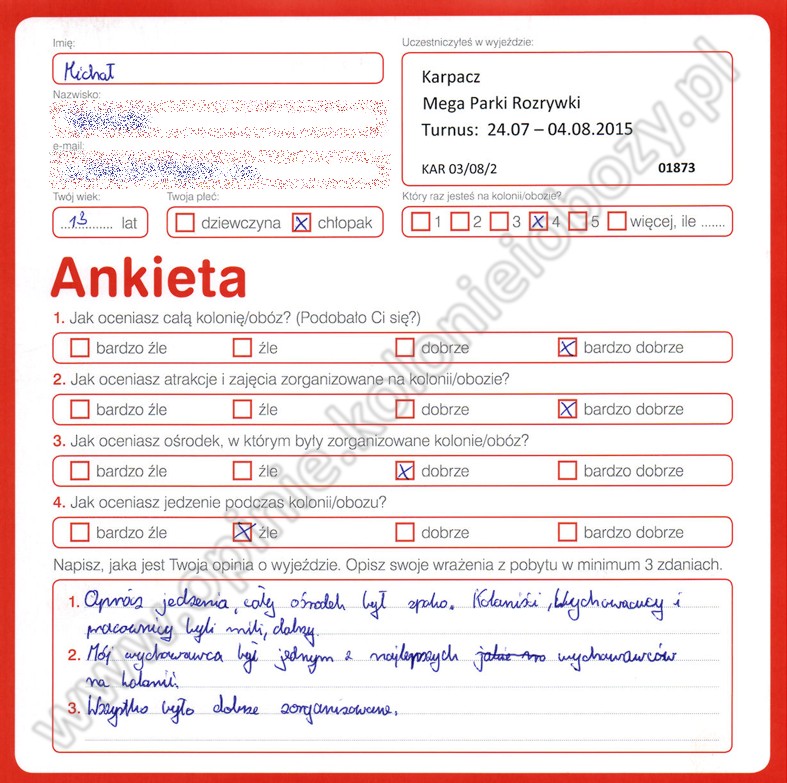 Imię:
Michał
Nazwisko:
e-mail:
Twój wiek:
13 lat
Twoja płeć:
dziewczyna chłopak
Uczestniczyłeś w wyjeździe:
Karpacz
Mega Parki Rozrywki
Turnus: 24.07 – 04.08.2015
KAR 03/08/2 01873
Który raz jesteś na kolonii/obozie?
1 2 3 4 5 więcej, ile .......
Ankieta
1. Jak oceniasz całą kolonię/obóz? (Podobało Ci się?)
bardzo źle źle dobrze bardzo dobrze
2. Jak oceniasz atrakcje i zajęcia zorganizowane na kolonii/obozie?
bardzo źle źle dobrze bardzo dobrze
3. Jak oceniasz ośrodek, w którym były zorganizowane kolonie/obóz?
bardzo źle źle dobrze bardzo dobrze
4. Jak oceniasz jedzenie podczas kolonii/obozu?
bardzo źle źle dobrze bardzo dobrze
Napisz, jaka jest Twoja opinia o wyjeździe. Opisz swoje wrażenia z pobytu w minimum 3 zdaniach.
1. Oprócz jedzenia, cały ośrodek był spoko. Koloniści, Wychowawcy i
pracownicy byli mili, dobrzy.
2. Mój wychowawca był jednym z najlepszych wychowawców
na kolonii.
3. Wszystko było dobrze zorganizowane.
www.opinie.kolonieiobozy.pl